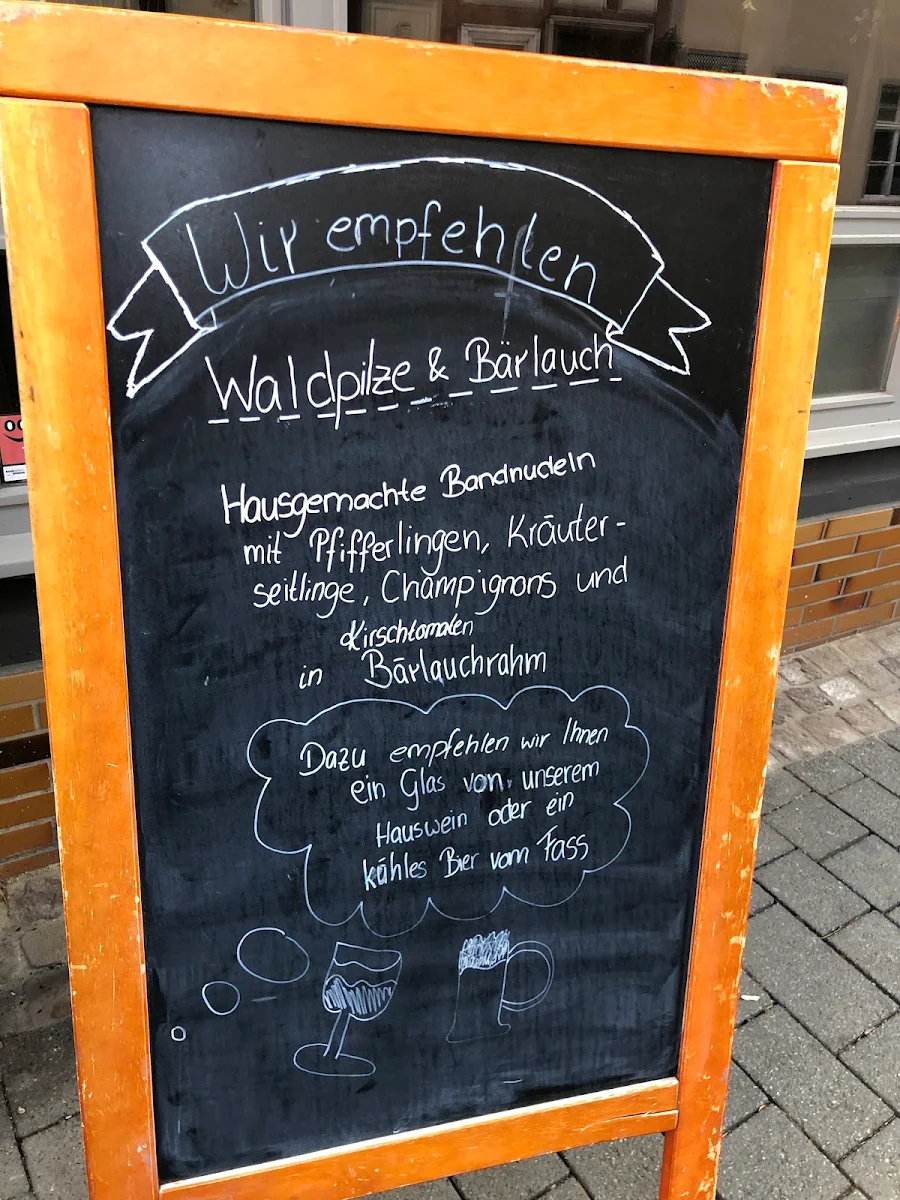 Wir empfehlen
Waldpilze & Bärlauch
Hausgemachte Bandnudeln
mit Pfifferlingen, Kräuter-
seitlinge, Champignons und
Kirschtomaten
in Bärlauchrahm
Dazu empfehlen wir Ihnen
ein Glas von unserem
Hauswein oder ein
kühles Bier vom Fass